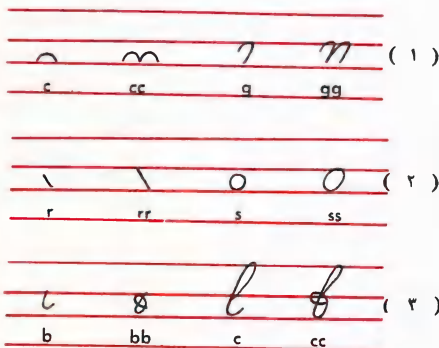 ( ١ )
c cc g gg
( ٢ )
r rr s ss
( ٣ )
b bb c cc